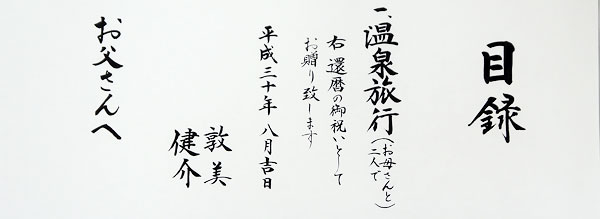 目録
一、温泉旅行(お母さんと二人で)
右 還暦の御祝いとして
お贈り致します
平成三十年 八月吉日
敦美
健介
お父さんへ